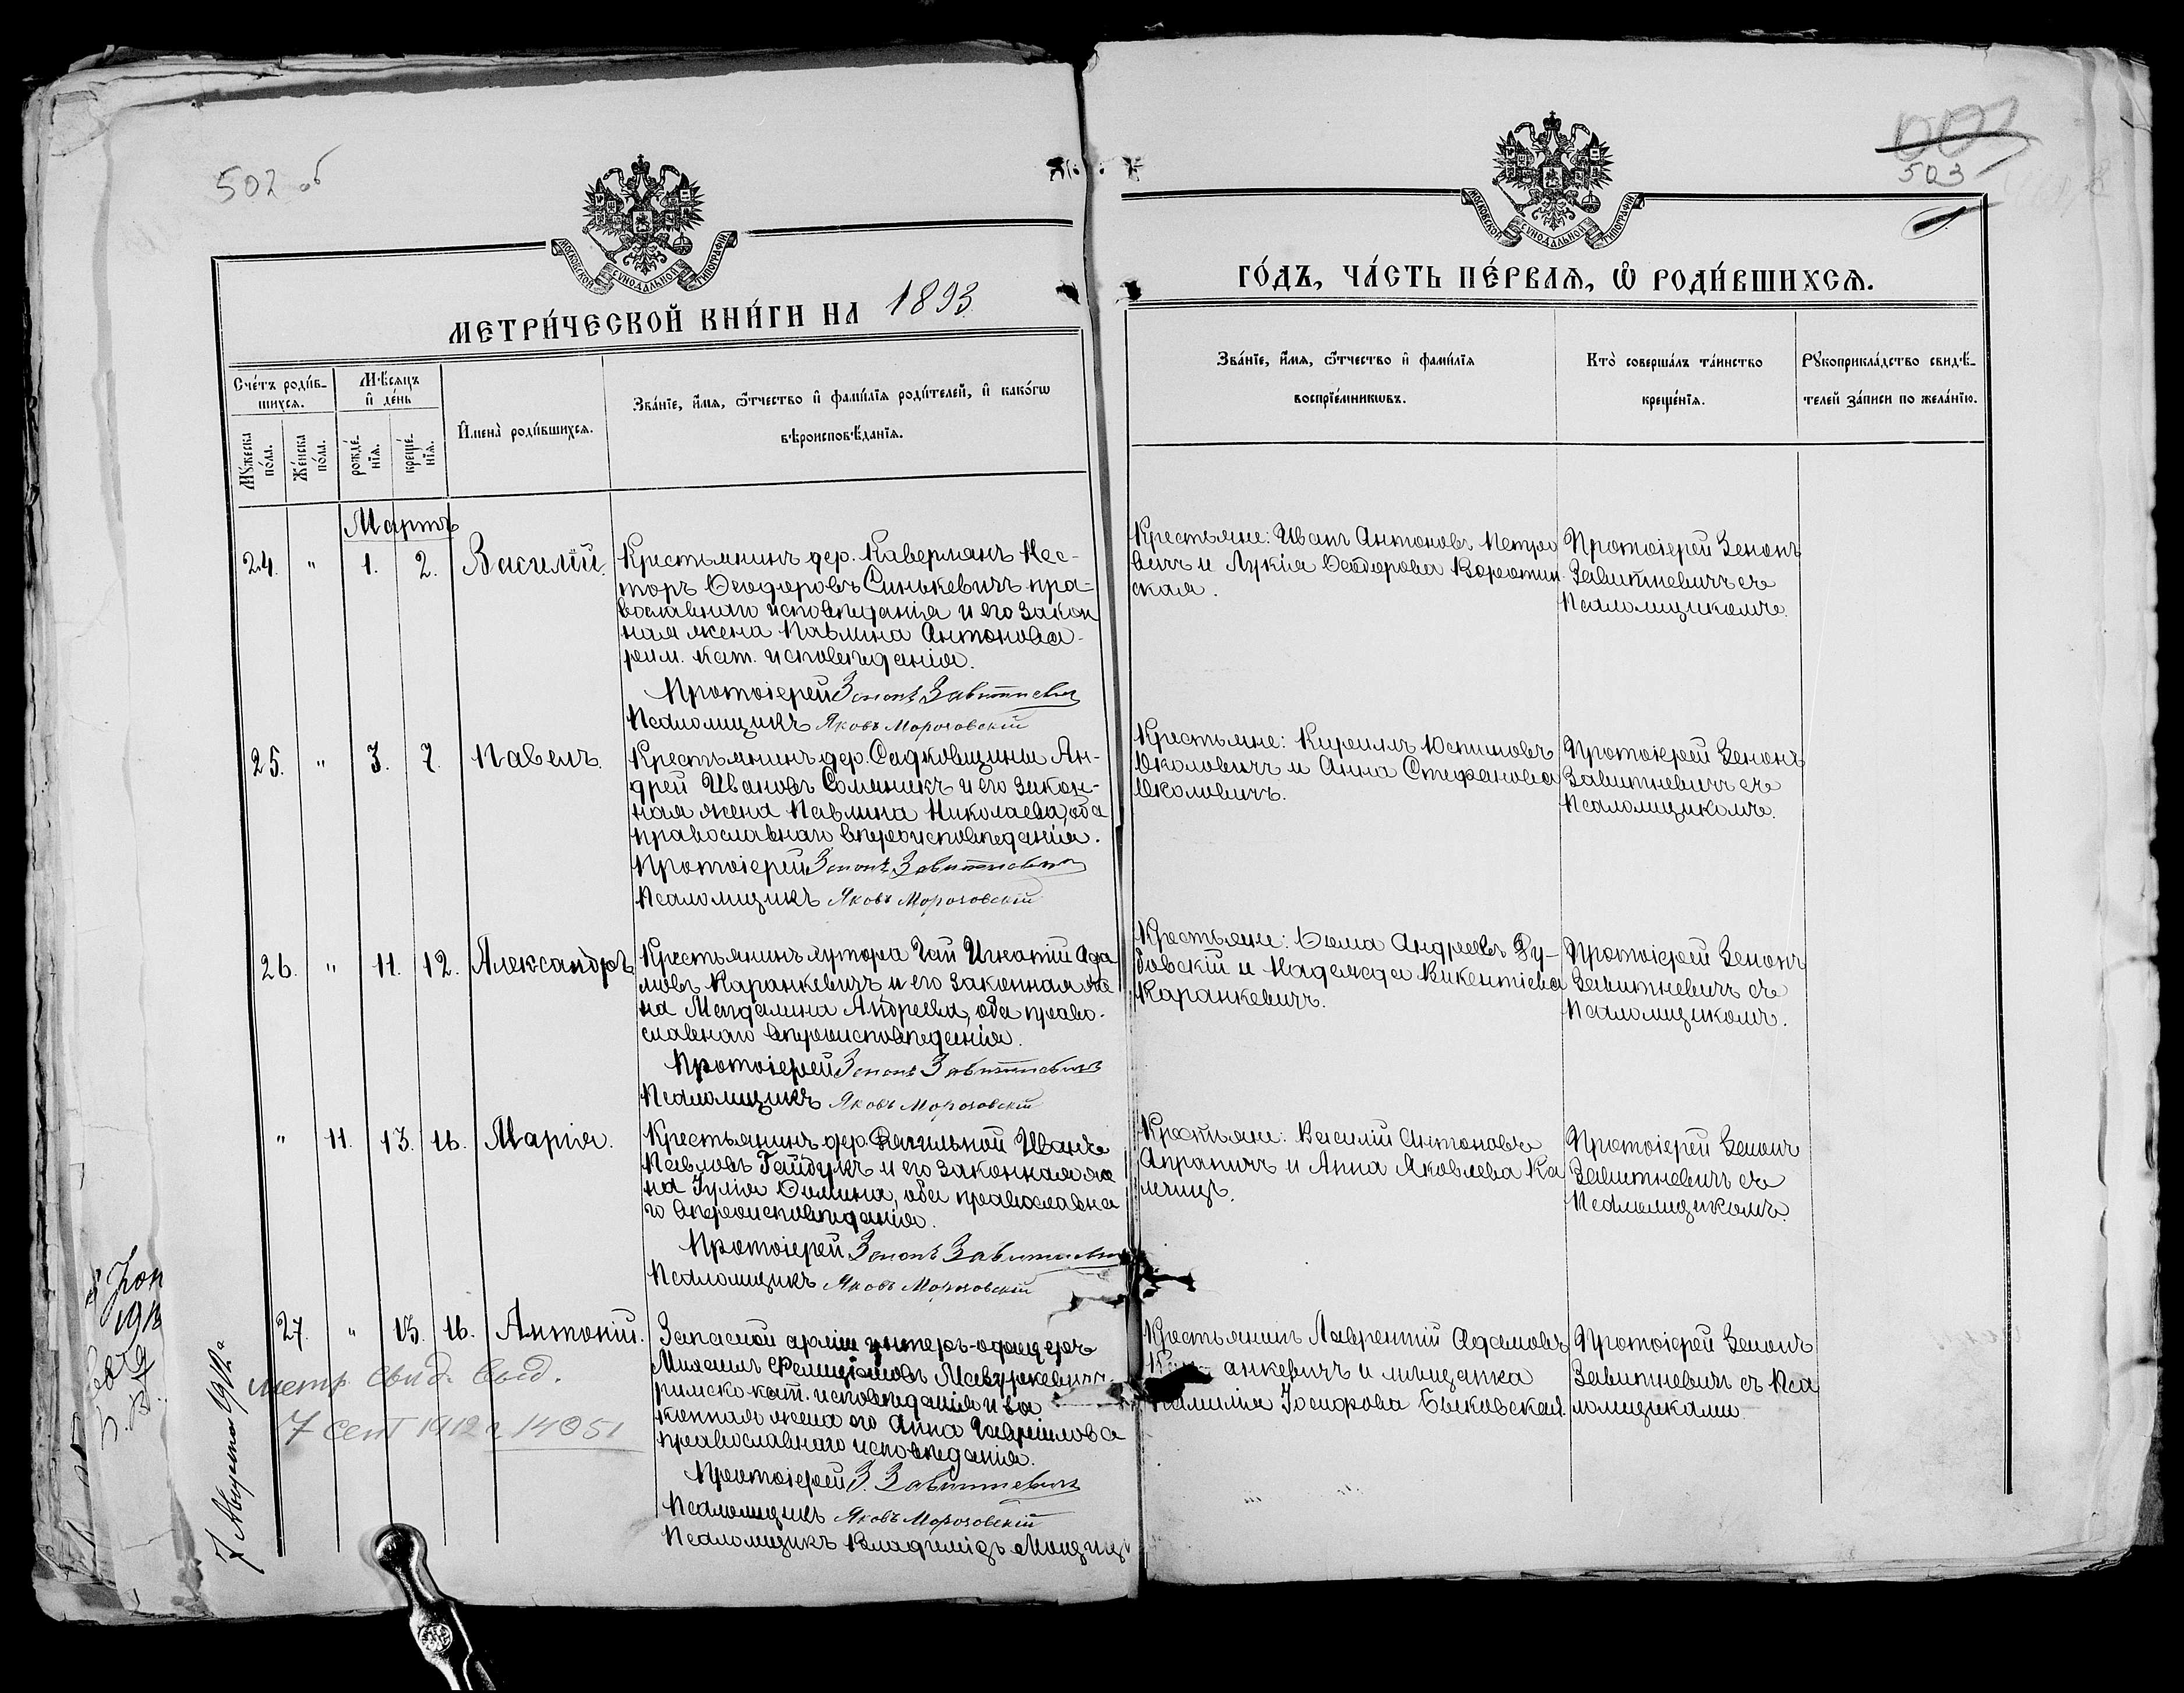 502 об
МОСКОВСКОЙ СѴНОДАЛЬНОЙ ТИПОГРАФІИ
МЕТРИ́ЧЕСКОЙ КНИ́ГИ НА 1893
Сче́тъ роди́в-
шихся.
Мѣ́сяцъ
и҆ де́нь
Мꙋ́жеска
по́ла.
Же́нска
по́ла.
рожде́-
нїѧ.
креще́-
нїѧ.
И҆мена̀ роди́вшихсѧ.
Зва́нїе, и҆́мѧ, ѻ҆́тчество и҆ фами́лїѧ роди́телей, и҆ како́гѡ
вѣроисповѣ́данїѧ.
Мартъ
24. " 1. 2. Василій.
Крестьянинъ дер. Каверманъ Нес-
торъ Ѳеодоровъ Синькевичъ пра-
вославнаго исповѣданія и его закон
ная жена Павлина Антонова
рим. кат. исповѣданія.
Протоіерей Зенонъ Завитневичъ
Псаломщикъ Яковъ Морозовскій
25. " 3. 7. Павелъ.
Крестьянинъ дер. Садковщины Ан-
дрей Ивановъ Соляникъ и его закон-
ная жена Павлина Николаева, оба
православнаго вѣроисповѣданія.
Протоіерей Зенонъ Завитневичъ
Псаломщикъ Яковъ Морозовскій
26. " 11. 12. Александръ
Крестьянинъ хутора Гай Игнатій Ада
мовъ Каранкевичъ и его законная же
на Магдалина Андреева, оба право-
славнаго вѣроисповѣданія.
Протоіерей Зенонъ Завитневичъ
Псаломщикъ Яковъ Морозовскій
" 11. 13. 16. Марія.
Крестьянинъ дер. Иванъ
Павловъ Гайдукъ и его законная же
на Іулія Ѳомина, оба православна
го вѣроисповѣданія.
Протоіерей Зенонъ Завитневичъ
Псаломщикъ Яковъ Морозовскій
27. " 15. 16. Антоній.
Запасной арміи унтеръ-офицеръ
Михаилъ Фелиціановъ Мазуркевичъ
римско-кат. исповѣданія и за
конная жена его Анна Гавріилова
православнаго исповѣданія.
Протоіерей З. Завитневичъ
Псаломщикъ Яковъ Морозовскій
Псаломщикъ Владиміръ
метр. свид. выд.
7 сент 1912 г. 14051
7 Августа 1912 г.
503
МОСКОВСКОЙ СѴНОДАЛЬНОЙ ТИПОГРАФІИ
ГО́ДЪ, ЧА́СТЬ ПЕ́РВАѦ, Ѽ РОДИ́ВШИХСѦ.
Зва́нїе, и҆́мѧ, ѻ҆́тчество и҆ фами́лїѧ
воспрїе́мникѡвъ.
Кто̀ соверша́лъ та́инство
креще́нїѧ.
Рꙋкоприкла́дство свидѣ́-
телей за́писи по жела́нїю.
Крестьяне: Иванъ Антоновъ Петро
вичъ и Лукія Ѳеодорова Воротын
ская.
Протоіерей Зенонъ
Завитневичъ съ
Псаломщикомъ.
Крестьяне: Кириллъ Устиновъ
Околовичъ и Анна Стефанова
Околовичъ.
Протоіерей Зенонъ
Завитневичъ съ
Псаломщикомъ.
Крестьяне: Ѳома Андреевъ Ду-
бовскій и Надежда Викентіева
Каранкевичъ.
Протоіерей Зенонъ
Завитневичъ съ
Псаломщикомъ.
Крестьяне: Василій Антоновъ
Апраничъ и Анна Яковлева Ка
лечицъ.
Протоіерей Зенонъ
Завитневичъ съ
Псаломщикомъ.
Крестьянинъ Лаврентій Адамовъ
анкевичъ и мѣщанка
Іосифова Быковская.
Протоіерей Зенонъ
Завитневичъ съ Пса
ломщиками